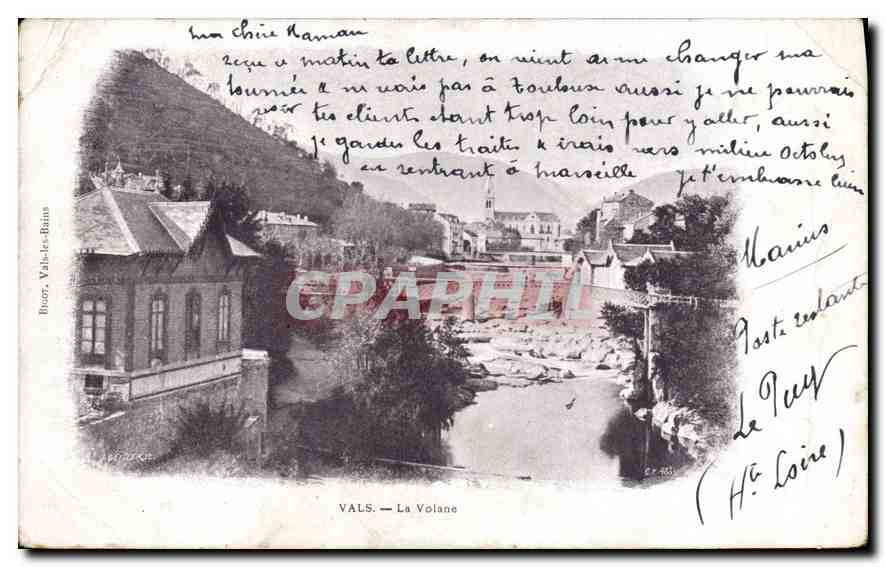 ma chère Maman
reçu ce matin ta lettre, on vient de me changer ma
tournée & ne vais pas à Toulouse aussi je ne pourrais
voir tes clients étant trop loin pour y aller, aussi
je gardes les traites & irais vers milieu Octobre
en rentrant à Marseille je t'embrasse bien
Marius
Poste restante
Le Puy
(Hte Loire)
BIGOT, Vals-les-Bains
CPAPHIL
VALS. — La Volane